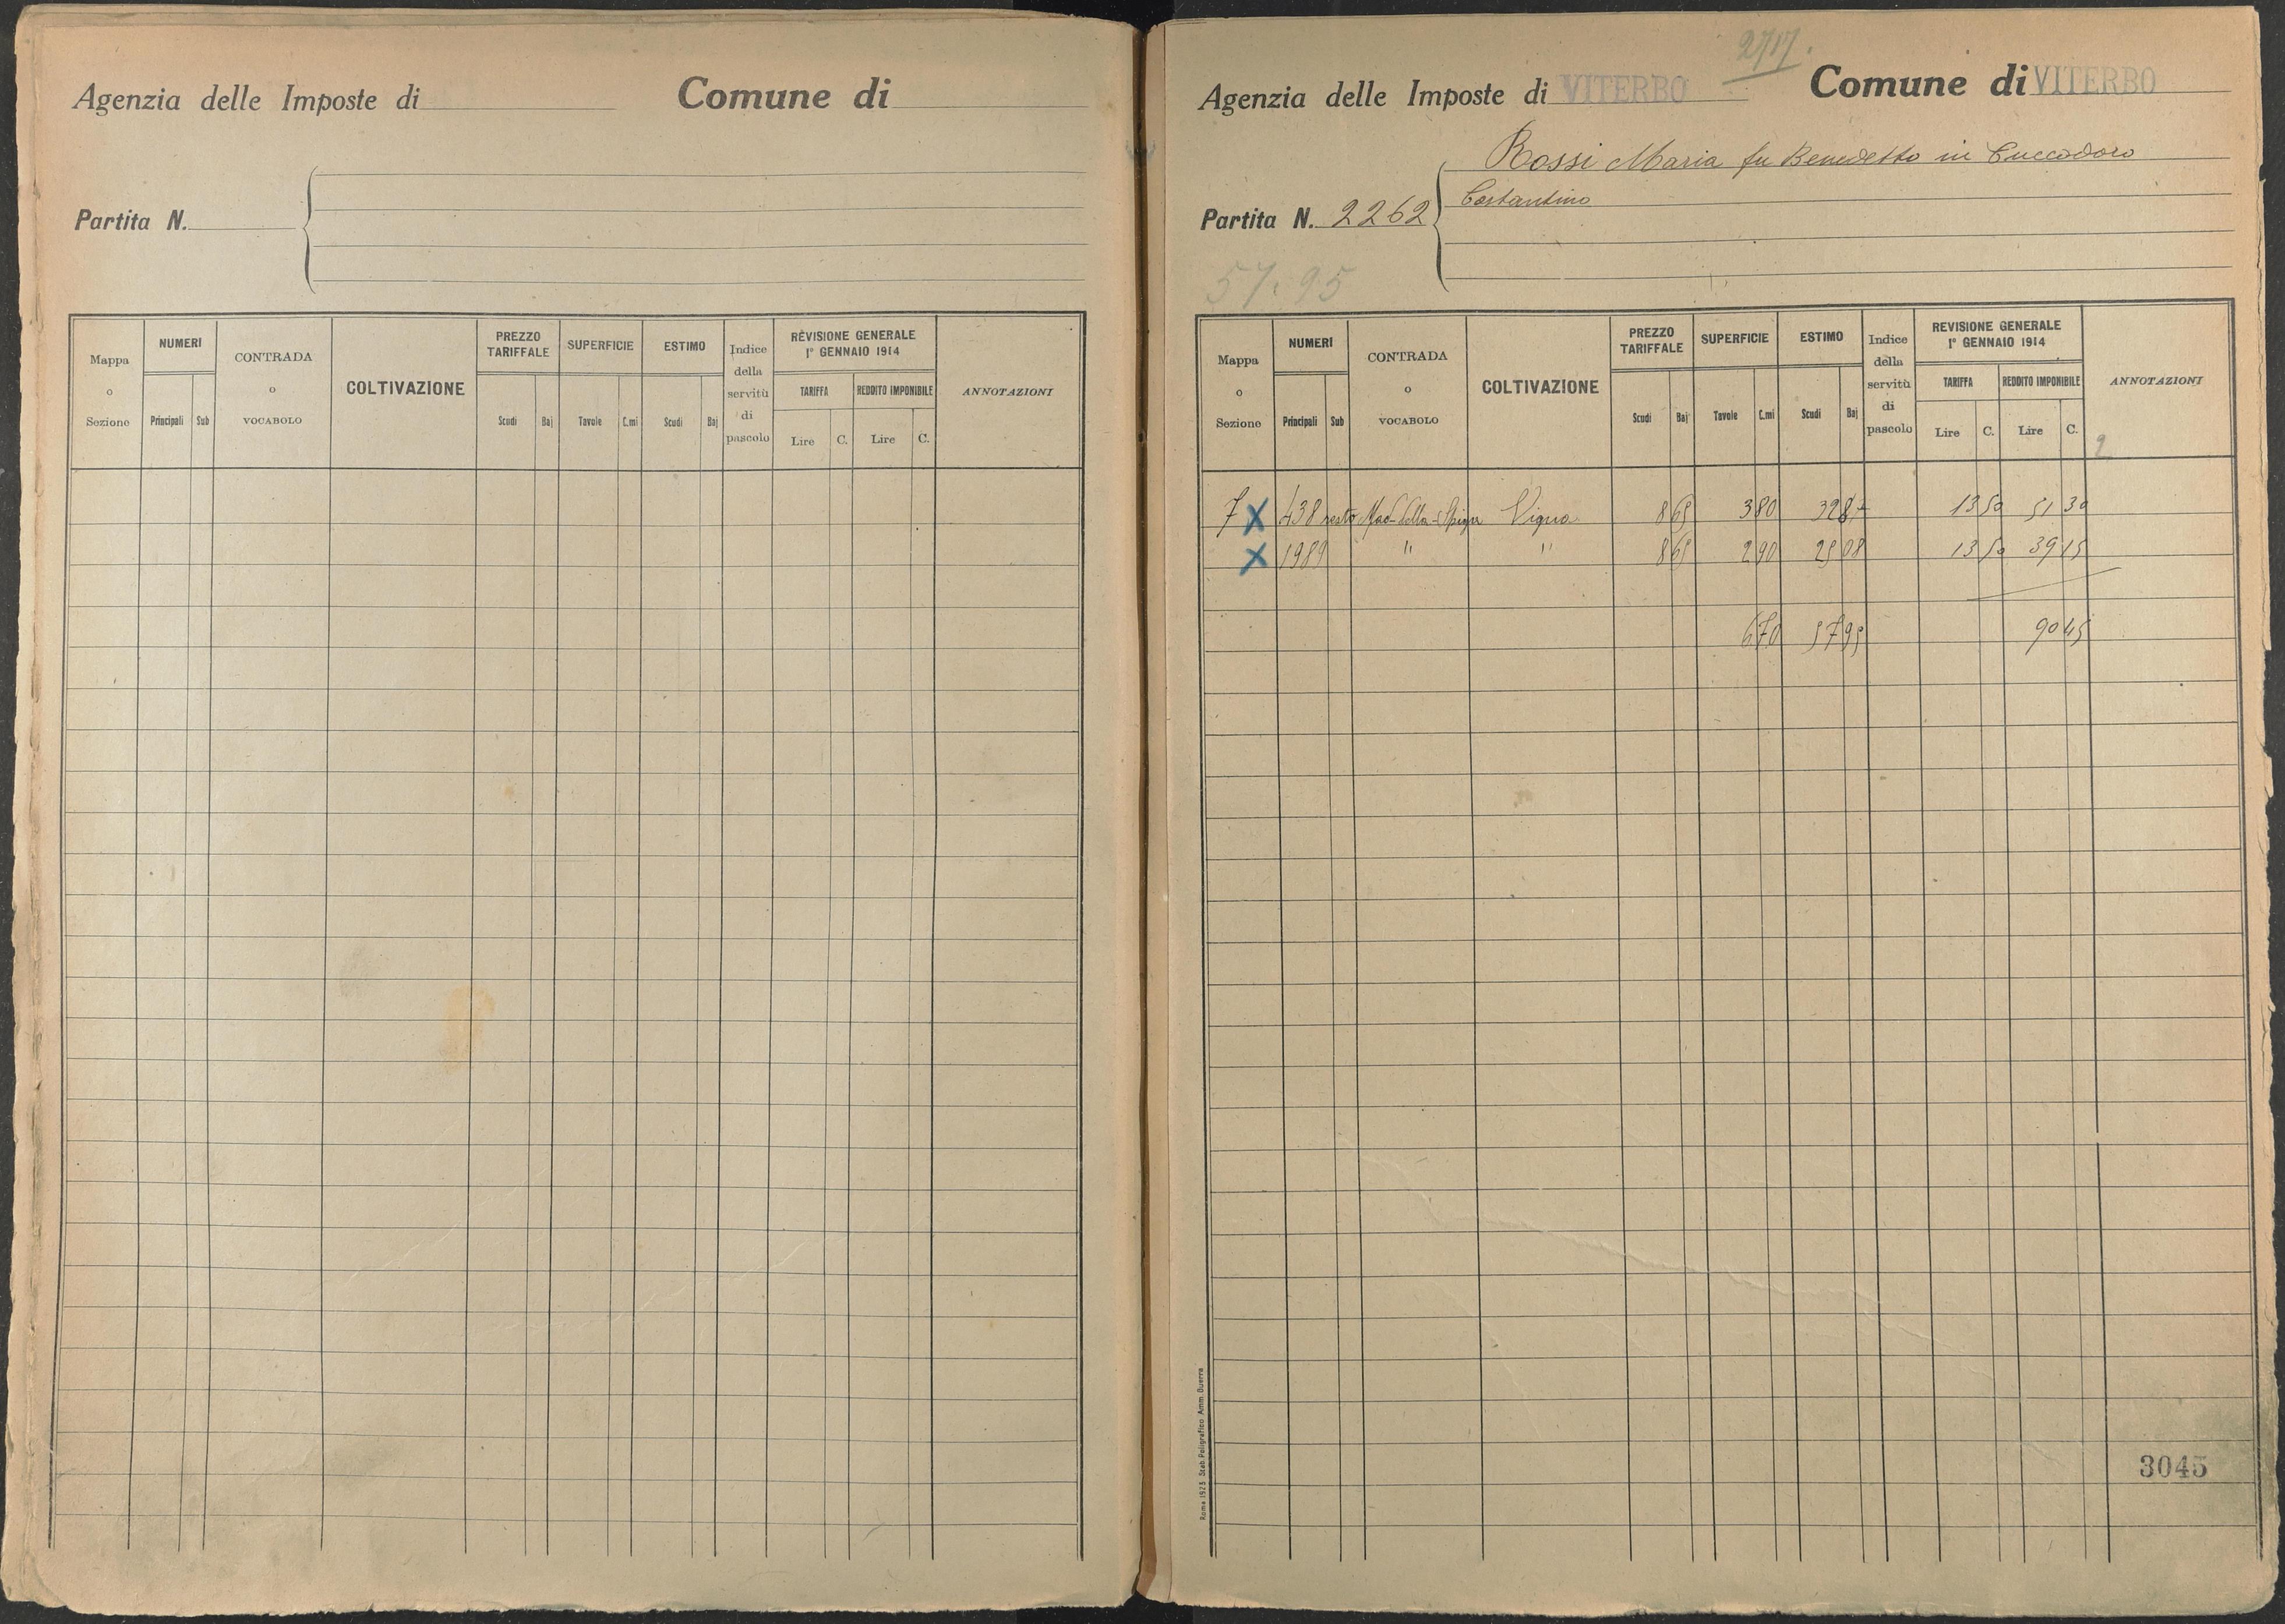 Agenzia delle Imposte di Comune di
Partita N.
Mappa o Sezione NUMERI Principali Sub CONTRADA o VOCABOLO COLTIVAZIONE PREZZO TARIFFALE Scudi Baj SUPERFICIE Tavole C.mi ESTIMO Scudi Baj Indice della servitù di pascolo REVISIONE GENERALE 1° GENNAIO 1914 TARIFFA Lire C. REDDITO IMPONIBILE Lire C. ANNOTAZIONI
2717.
Agenzia delle Imposte di VITERBO Comune di VITERBO
Rossi Maria fu Benedetto in Cuccodoro
Costantino
Partita N. 2262
57.95
Mappa o Sezione NUMERI Principali Sub CONTRADA o VOCABOLO COLTIVAZIONE PREZZO TARIFFALE Scudi Baj SUPERFICIE Tavole C.mi ESTIMO Scudi Baj Indice della servitù di pascolo REVISIONE GENERALE 1° GENNAIO 1914 TARIFFA Lire C. REDDITO IMPONIBILE Lire C. ANNOTAZIONI
2
7 X 438 resto Mad. della Vigna 8 65 3 80 32 87 13 50 51 30
X 1989 " " 8 65 2 90 25 08 13 50 39 15
6 70 57 95 90 45
3045
Roma 1923 Stab. Poligrafico Amm. Guerra